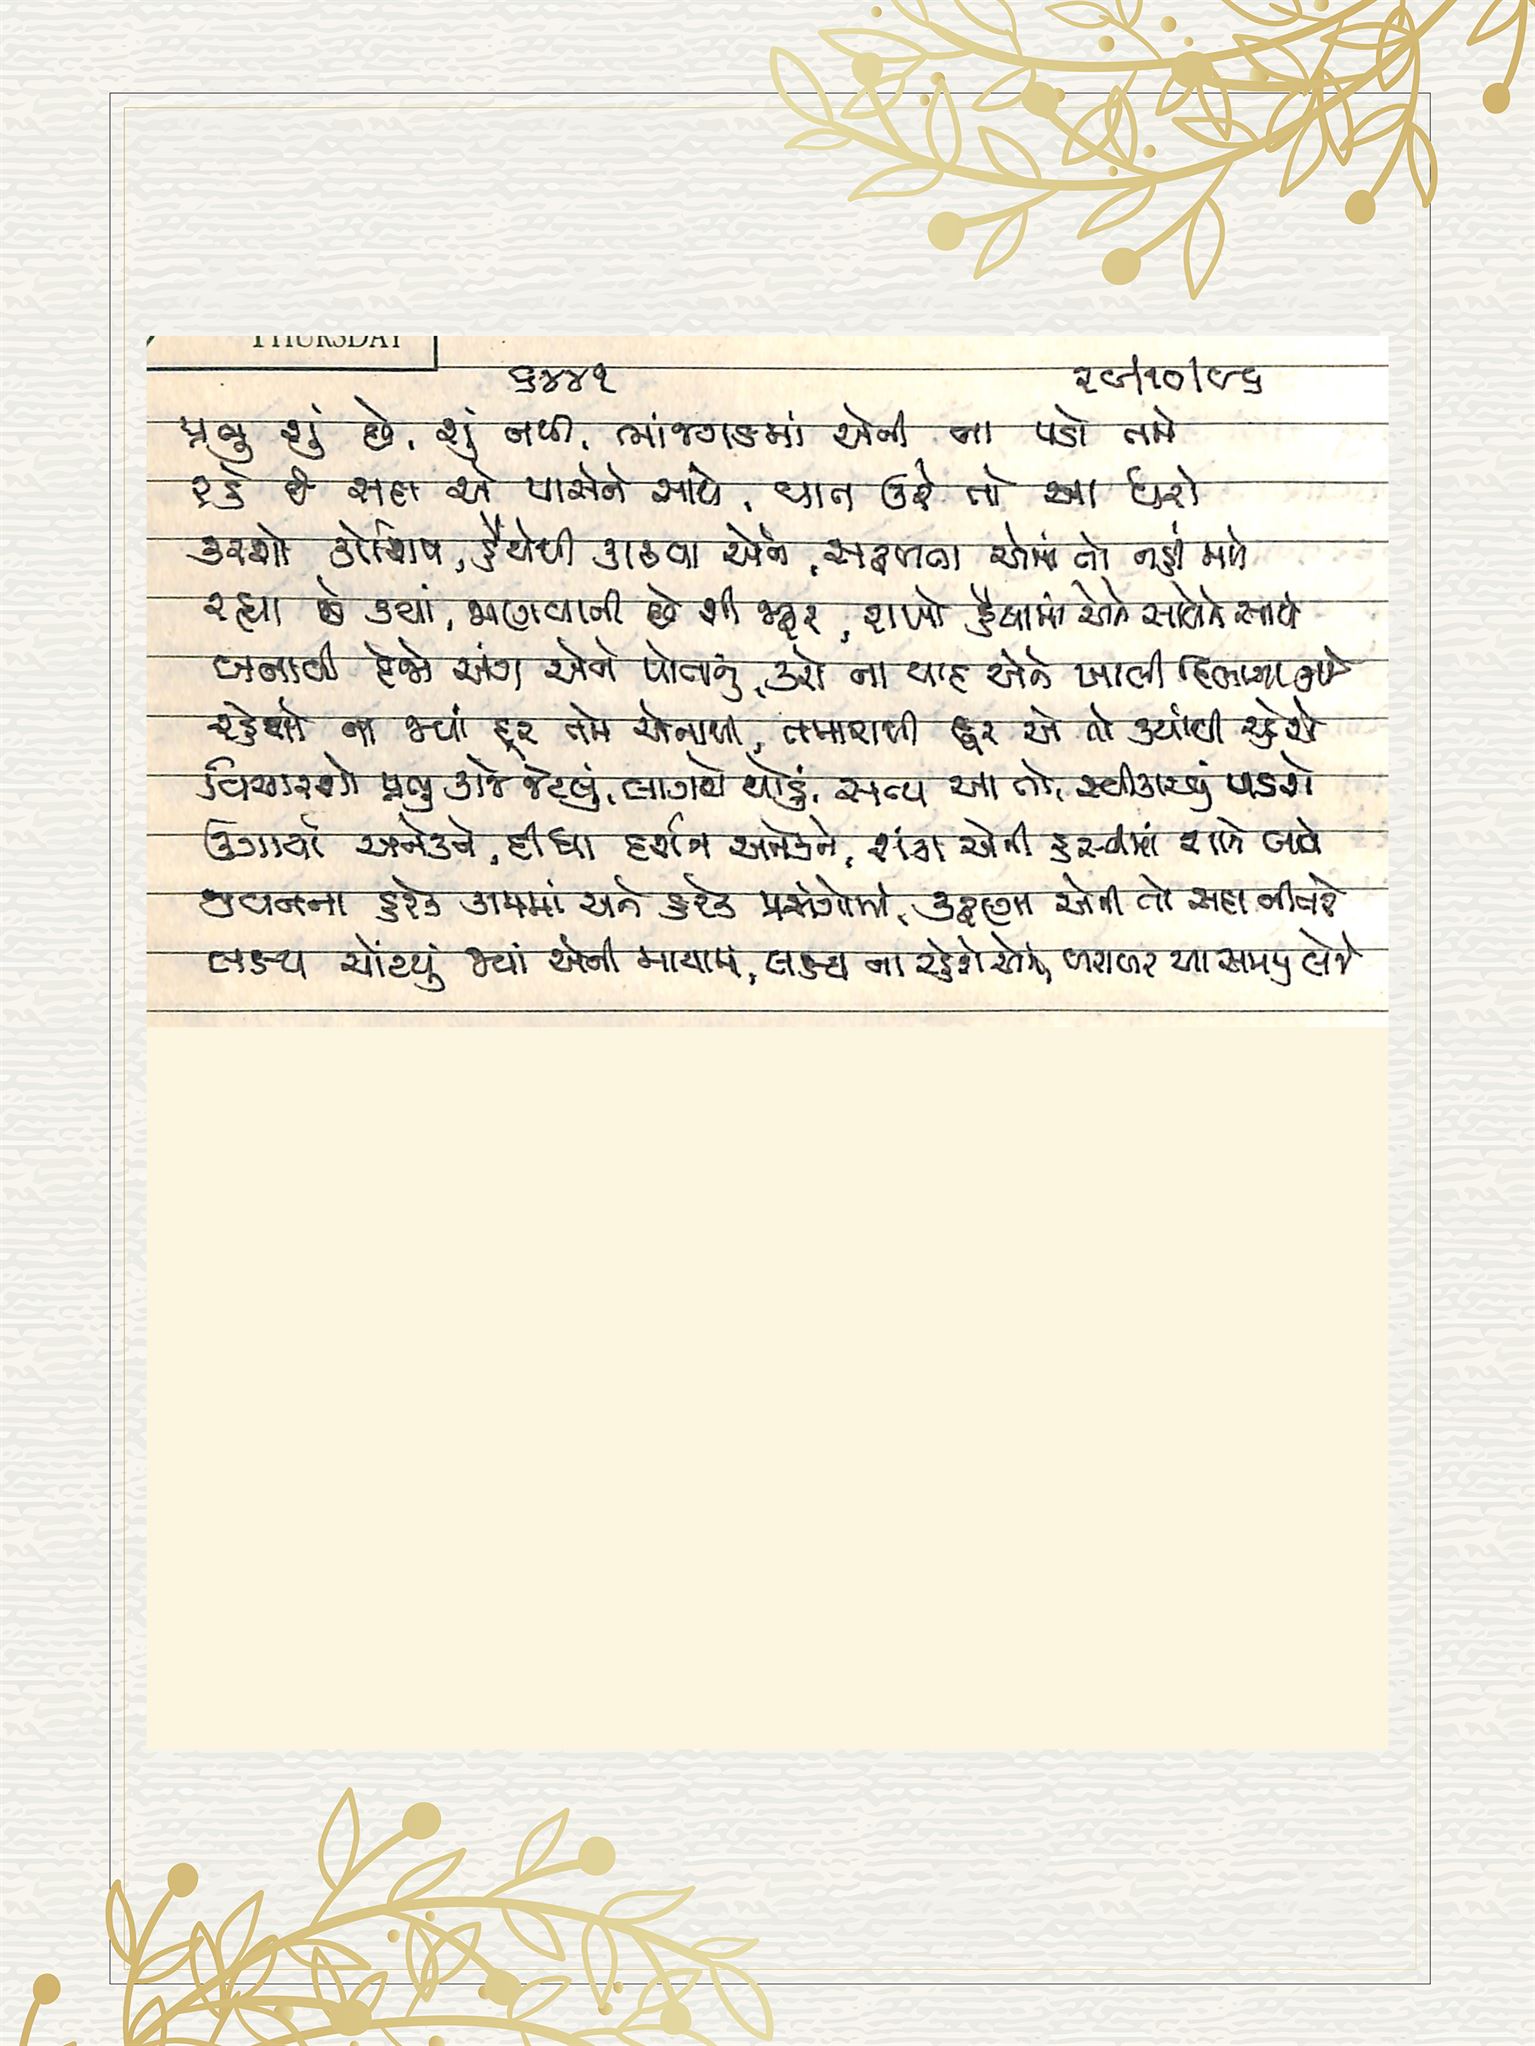 THURSDAY
૬૪૪૧ ૨૯/૧૦/૯૬
પ્રભુ શું છે, શું નથી, ભાંજગડમાં એની ના પડો તમે
રહે છે સદા એ પાસેને સાથે, ધ્યાન ઉરે તો આ ધરો
કરશો કોશિષ, હૈયેથી કાઢવા એને, સફળતા એમાં તો નહીં મળે
રહ્યા છે ક્યાં, જાણવાની છે શી જરૂર, રાખો હૈયામાં એને સાથેને સાથે
બનાવી દેજો અંગ એને પોતાનું, કરો ના યાદ એને ખાલી
રહેશો ના જ્યાં દૂર તમે એનાથી, તમારાથી દૂર એ તો ક્યાંથી રહેશે
વિચારશો પ્રભુ કાજે જેટલું, લાગશે થોડું, સત્ય આ તો, સ્વીકારવું પડશે
ઉગાર્યા અનેકને, દીધા દર્શન અનેકને, શંકા એની હસ્તીમાં શાને જાગે
જીવનના હરેક કામમાં અને હરેક પ્રસંગોમાં, કરૂણા એની તો સદા નીતરે
લક્ષ્ય ચોંટયું જ્યાં એની માયામાં, લક્ષ્ય ના રહેશે એમાં, બરાબર આ સમજી લેજે